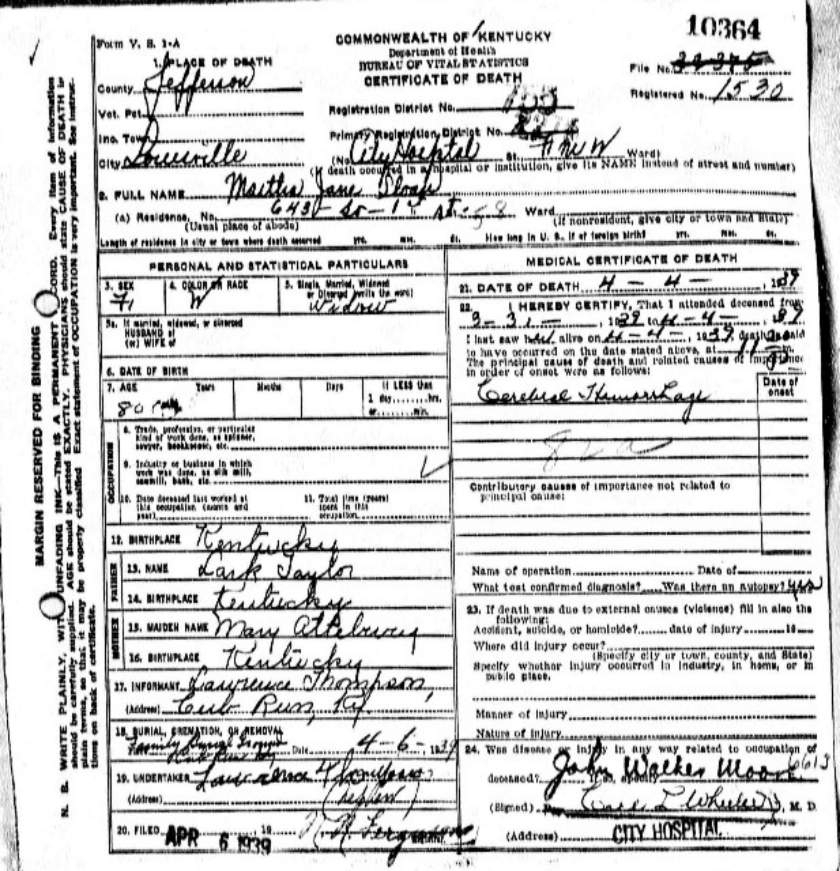 10364
Form V. S. 1-A
COMMONWEALTH OF KENTUCKY
Department of Health
BUREAU OF VITAL STATISTICS
CERTIFICATE OF DEATH
File No.
Registered No. 1530
1. PLACE OF DEATH
County Jefferson
Vot. Pct.
Inc. Town
City Louisville
Registration District No.
Primary Registration District No.
(No. City Hospital St. Ward)
(If death occurred in a hospital or institution, give its NAME instead of street and number)
2. FULL NAME Martha Jane Sloan
(a) Residence, No. St. Ward
(Usual place of abode) (If nonresident, give city or town and State)
Length of residence in city or town where death occurred yrs. mos. ds. How long in U. S., if of foreign birth? yrs. mos. ds.
PERSONAL AND STATISTICAL PARTICULARS
3. SEX 4. COLOR OR RACE 5. Single, Married, Widowed
or Divorced (write the word)
F W Widow
5a. If married, widowed, or divorced
HUSBAND of
(or) WIFE of
6. DATE OF BIRTH
7. AGE Years Months Days If LESS than
1 day,......hrs.
or......min.
80
OCCUPATION
8. Trade, profession, or particular
kind of work done, as spinner,
sawyer, bookkeeper, etc.
9. Industry or business in which
work was done, as silk mill,
sawmill, bank, etc.
10. Date deceased last worked at
this occupation (month and
year)
11. Total time (years)
spent in this
occupation
12. BIRTHPLACE Kentucky
FATHER
13. NAME Lark Taylor
14. BIRTHPLACE Kentucky
MOTHER
15. MAIDEN NAME Mary Attebury
16. BIRTHPLACE Kentucky
17. INFORMANT Lawrence Thompson,
(Address) Cub Run, Ky.
18. BURIAL, CREMATION, OR REMOVAL
Family Burial Ground
Date 4-6-, 1939
19. UNDERTAKER Lawrence Thompson
(Address)
20. FILED APR 6 1939
MEDICAL CERTIFICATE OF DEATH
21. DATE OF DEATH 4 - 4 - , 1939
22. I HEREBY CERTIFY, That I attended deceased from
3-31-, 1939 to 4-4-, 1939
I last saw her alive on 4-4-, 1939 death is said
to have occurred on the date stated above, at m.
The principal cause of death and related causes of importance
in order of onset were as follows:
Date of
onset
Cerebral Hemorrhage
82a
Contributory causes of importance not related to
principal cause:
Name of operation Date of
What test confirmed diagnosis? Was there an autopsy? yes
23. If death was due to external causes (violence) fill in also the
following:
Accident, suicide, or homicide? date of injury 19
Where did injury occur?
(Specify city or town, county, and State)
Specify whether injury occurred in industry, in home, or in
public place.
Manner of injury
Nature of injury
24. Was disease or injury in any way related to occupation of
deceased? If so, specify
John Walker Moore 6613
(Signed) M. D.
(Address) CITY HOSPITAL
MARGIN RESERVED FOR BINDING
N. B. WRITE PLAINLY, WITH UNFADING INK—THIS IS A PERMANENT RECORD. Every item of information
should be carefully supplied. AGE should be stated EXACTLY. PHYSICIANS should state CAUSE OF DEATH in
plain terms, so that it may be properly classified. Exact statement of OCCUPATION is very important. See instruc-
tions on back of certificate.